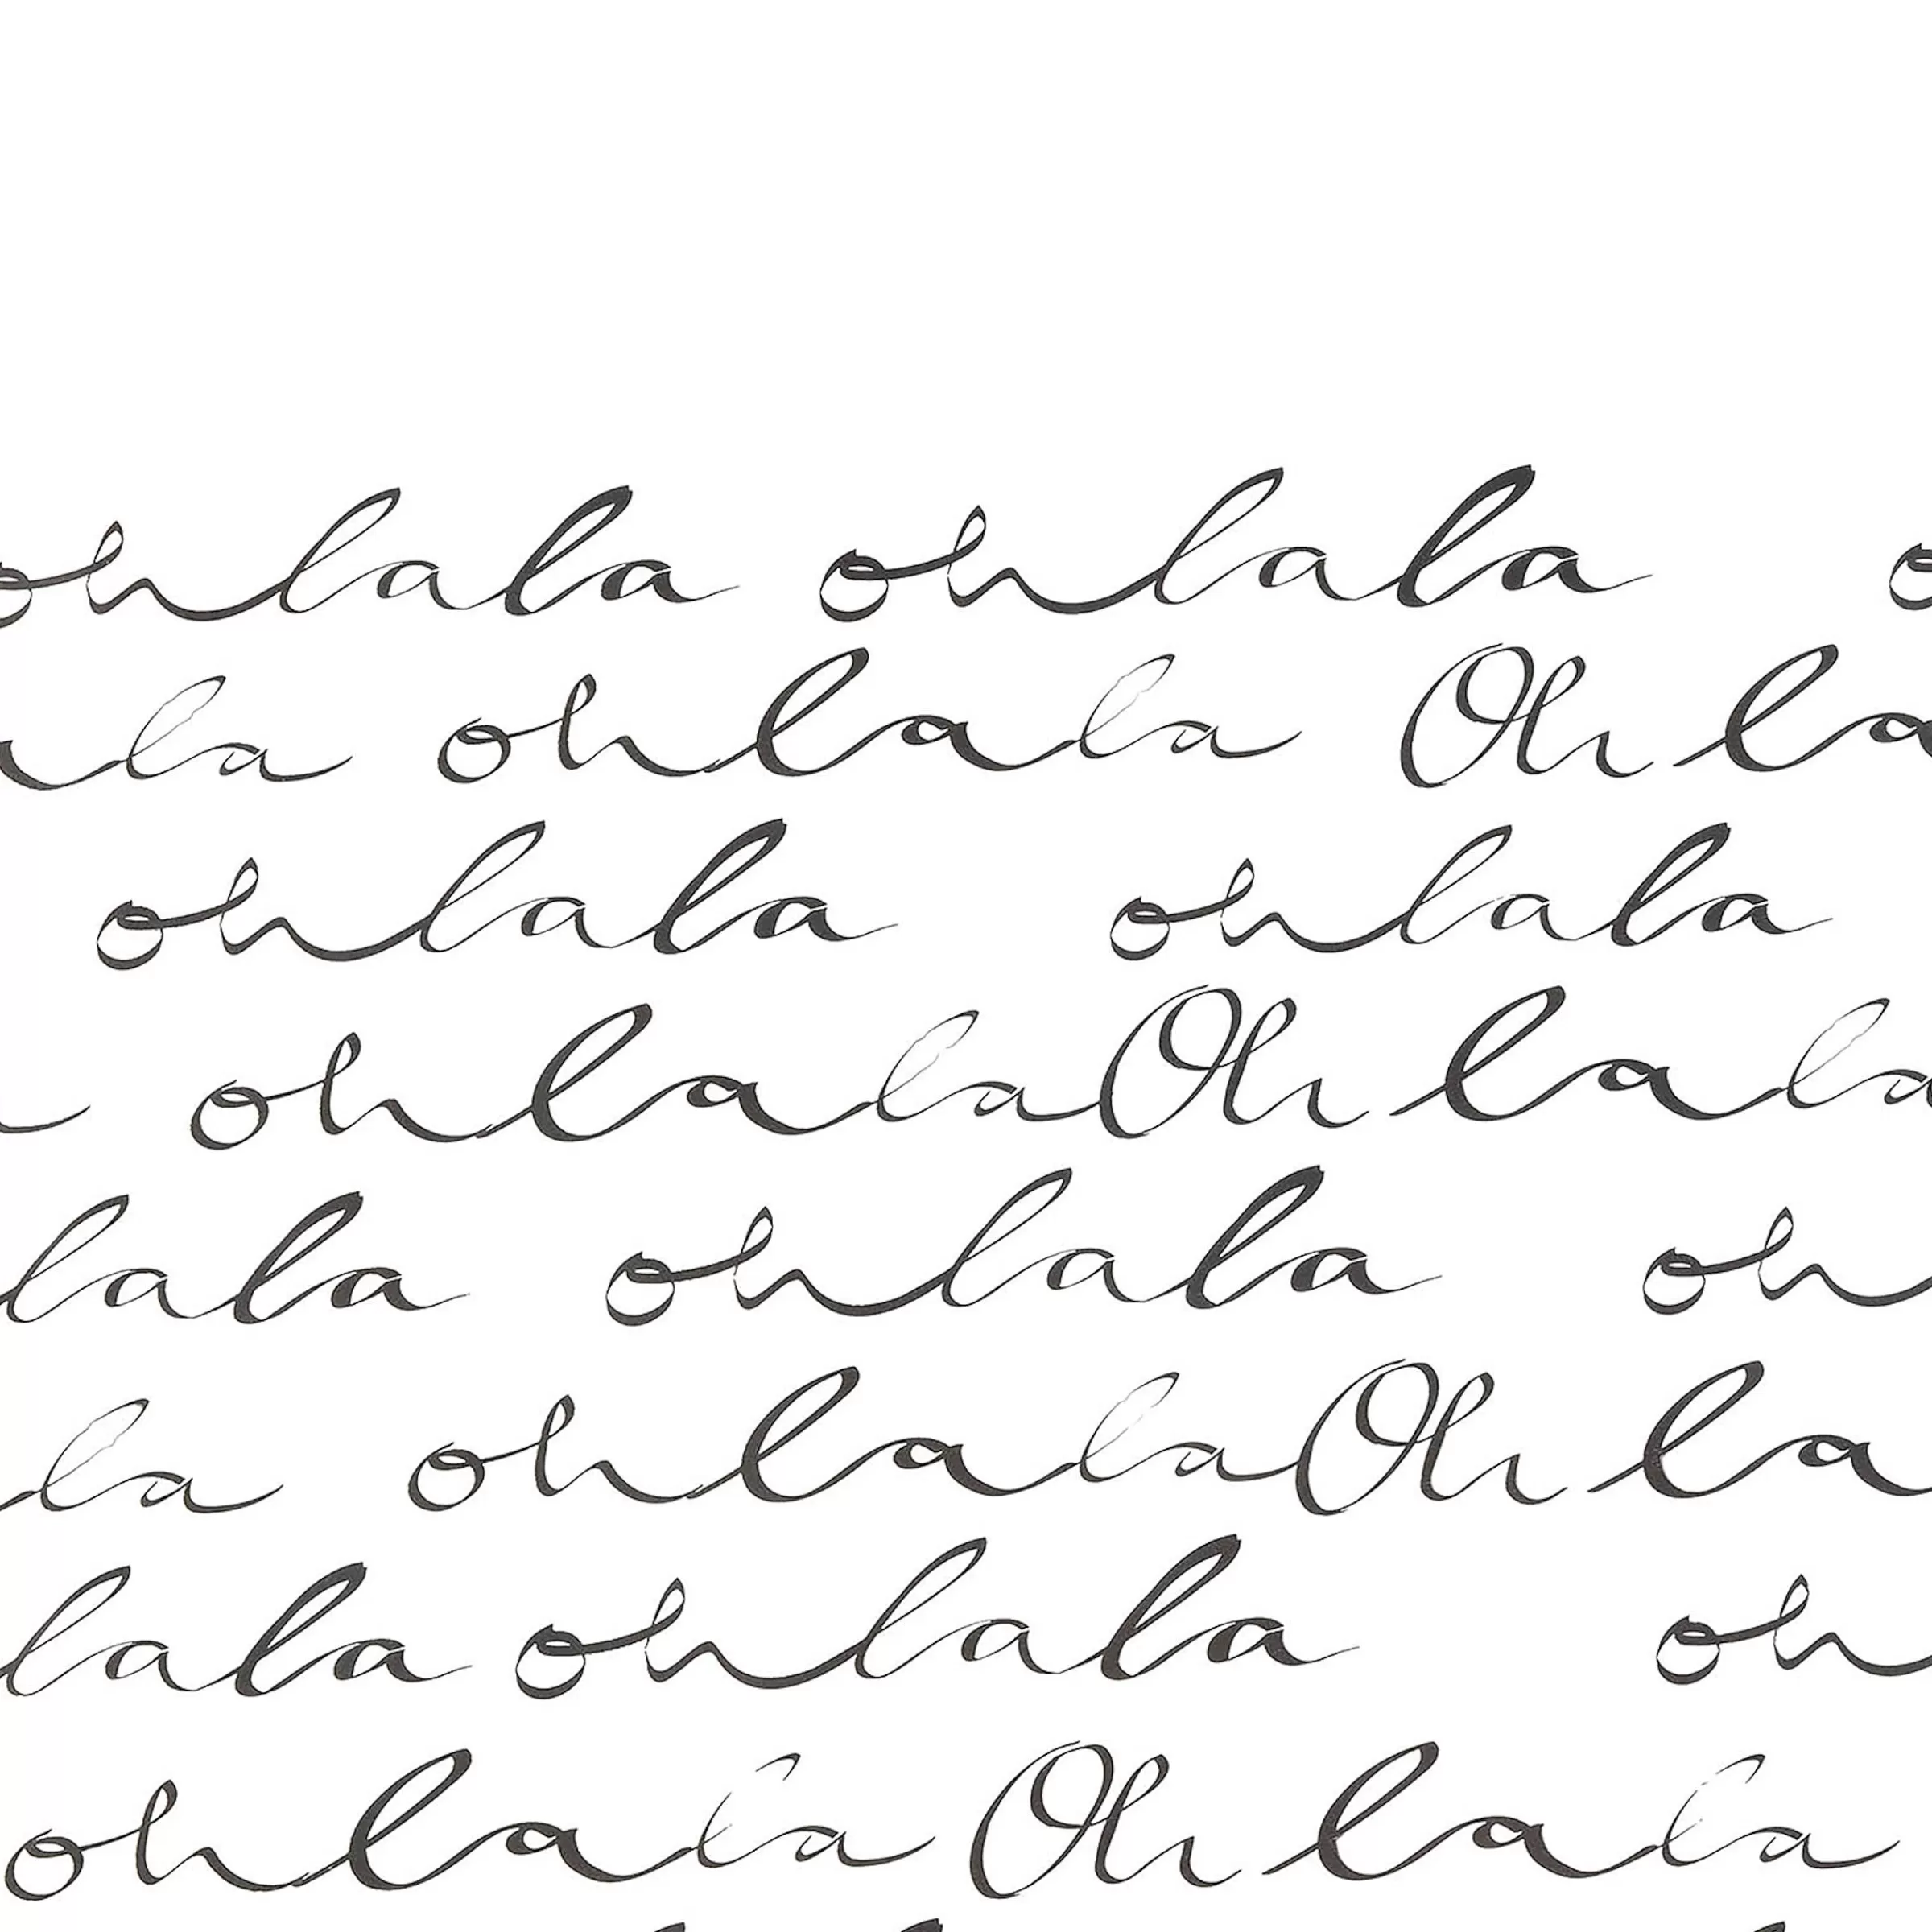 ohlala ohlala o
la ohlala Oh la
ohlala ohlala
ohlalaOh lala
lala ohlala oh
la ohlalaOh la
lala ohlala oh
ohlala Oh lala